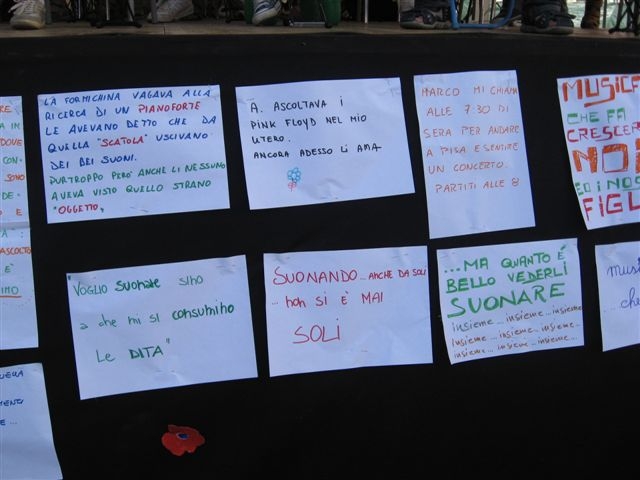 LA FORMICHINA VAGAVA ALLA
RICERCA DI UN PIANOFORTE
LE AVEVANO DETTO CHE DA
QUELLA "SCATOLA" USCIVANO
DEI BEI SUONI.
PURTROPPO PERÒ ANCHE LI NESSUNO
AVEVA VISTO QUELLO STRANO
"OGGETTO"
A. ASCOLTAVA I
PINK FLOYD NEL MIO
UTERO.
ANCORA ADESSO LI AMA
MARCO MI CHIAMA
ALLE 7.30 DI
SERA PER ANDARE
A PISA E SENTIRE
UN CONCERTO.
PARTITI ALLE 8
MUSICA
CHE FA
CRESCER
NOI
ED I NOS
FIGL
"VOGLIO SUONARE SINO
a che mi si consumino
Le DITA"
SUONANDO... ANCHE DA SOLI
... non SI È MAI
SOLI
...MA QUANTO È
BELLO VEDERLI
SUONARE
insieme... insieme... insieme
insieme... insieme... insieme...
insieme... insieme... insieme...
musi
...che
RE
A IN
DOVE
CON-
SONO
DE-
O E
ASCOLTO
E'
IMO
UERA
MENTI
E...